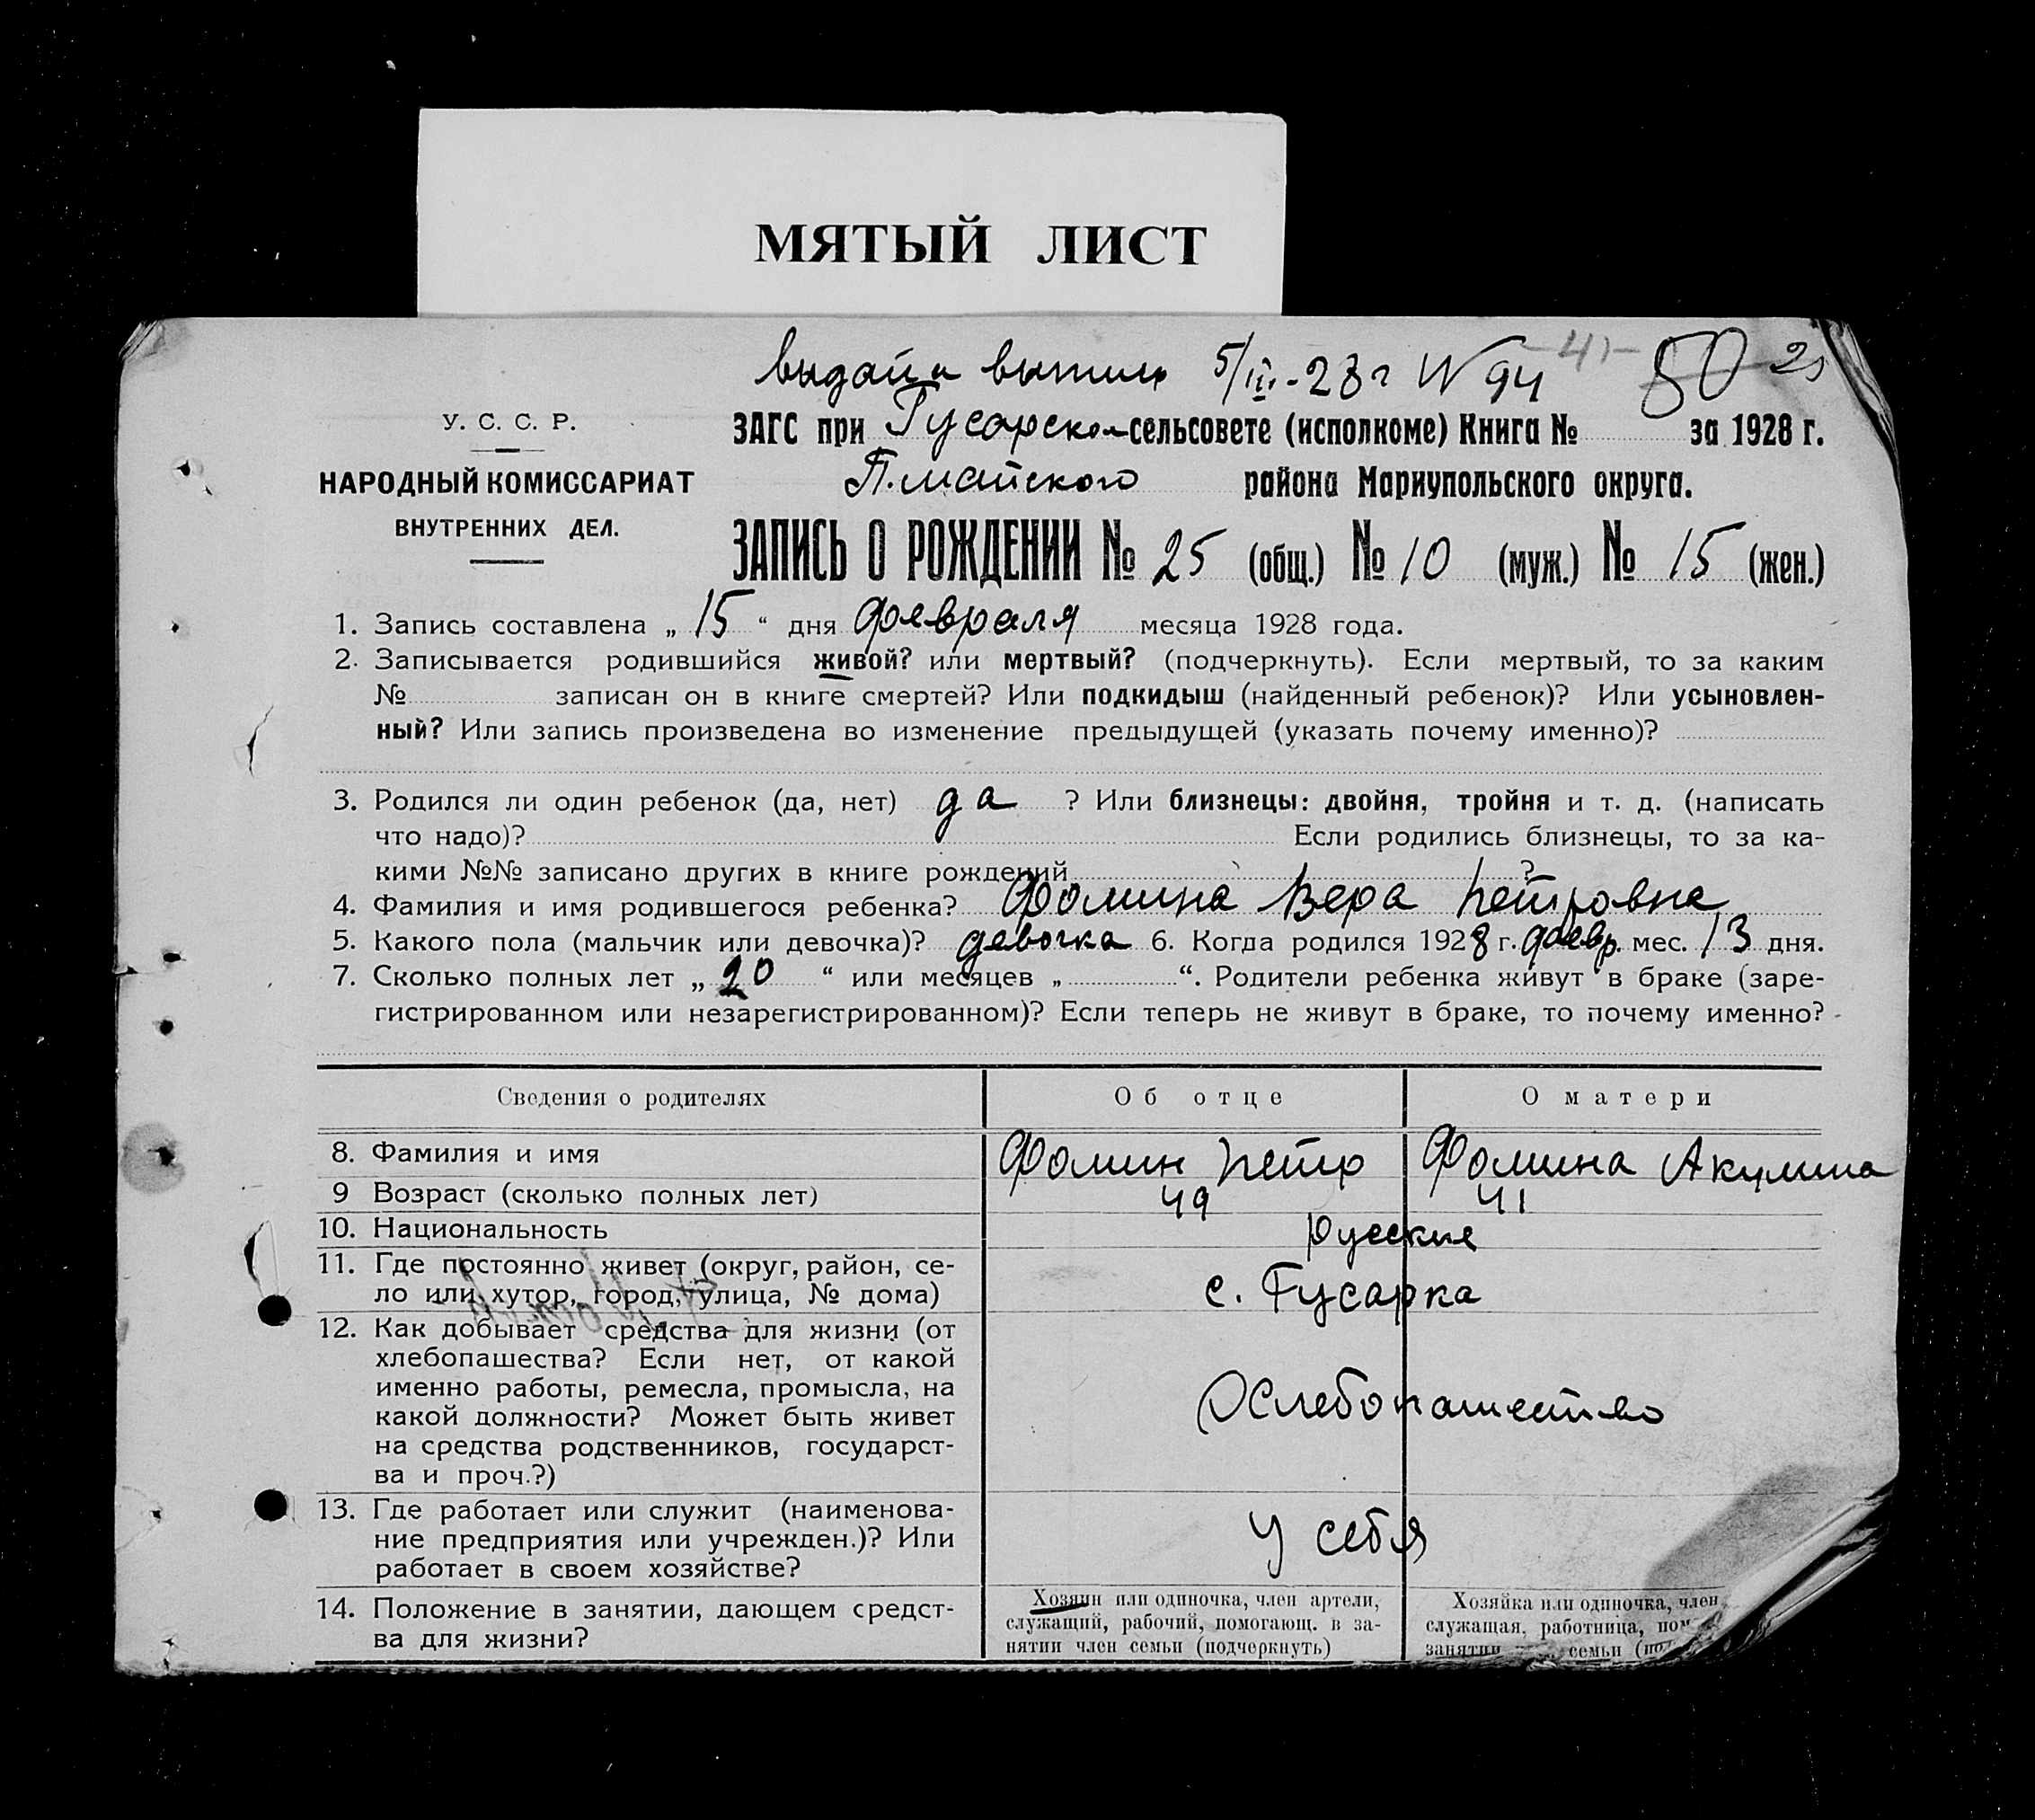 МЯТЫЙ ЛИСТ
выдан 5/III-28 г N 94 50
У. С. С. Р.
НАРОДНЫЙ КОМИССАРИАТ
ВНУТРЕННИХ ДЕЛ.
ЗАГС при Гусарском сельсовете (исполкоме) Книга № за 1928 г.
П. майского района Мариупольского округа.
ЗАПИСЬ О РОЖДЕНИИ № 25 (общ.) № 10 (муж.) № 15 (жен.)
1. Запись составлена „ 15 “ дня февраля месяца 1928 года.
2. Записывается родившийся живой? или мертвый? (подчеркнуть). Если мертвый, то за каким
№ записан он в книге смертей? Или подкидыш (найденный ребенок)? Или усыновлен-
ный? Или запись произведена во изменение предыдущей (указать почему именно)?
3. Родился ли один ребенок (да, нет) да ? Или близнецы: двойня, тройня и т. д. (написать
что надо)? Если родились близнецы, то за ка-
кими №№ записано других в книге рождений ?
4. Фамилия и имя родившегося ребенка? Фомина Вера Петровна
5. Какого пола (мальчик или девочка)? девочка 6. Когда родился 1928 г. февр. мес. 13 дня.
7. Сколько полных лет „ 20 “ или месяцев „ “. Родители ребенка живут в браке (заре-
гистрированном или незарегистрированном)? Если теперь не живут в браке, то почему именно?
Сведения о родителях Об отце О матери
8. Фамилия и имя Фомин Петр Фомина Акулина
9 Возраст (сколько полных лет) 49 41
10. Национальность русские
11. Где постоянно живет (округ, район, се-
ло или хутор, город, улица, № дома) с. Гусарка
12. Как добывает средства для жизни (от
хлебопашества? Если нет, от какой
именно работы, ремесла, промысла, на
какой должности? Может быть живет
на средства родственников, государст-
ва и проч.?)
Хлебопашество
13. Где работает или служит (наименова-
ние предприятия или учрежден.)? Или
работает в своем хозяйстве?
у себя
14. Положение в занятии, дающем средст-
ва для жизни?
Хозяин или одиночка, член артели,
служащий, рабочий, помогающ. в за-
нятии член семьи (подчеркнуть)
Хозяйка или одиночка, член
служащая, работница,
занятии семьи